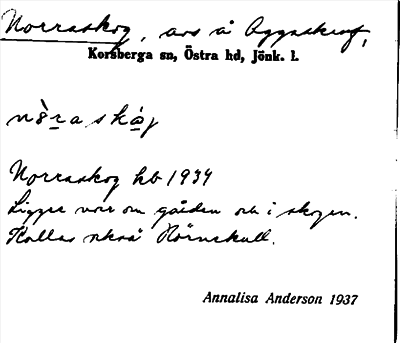 Norraskog, avs å Oggaskruf,
Korsberga sn, Östra hd, Jönk. l.
Norraskog hb 1934
Ligger norr om gården och i skogen.
Kallas också Hörnekull.
Annalisa Anderson 1937